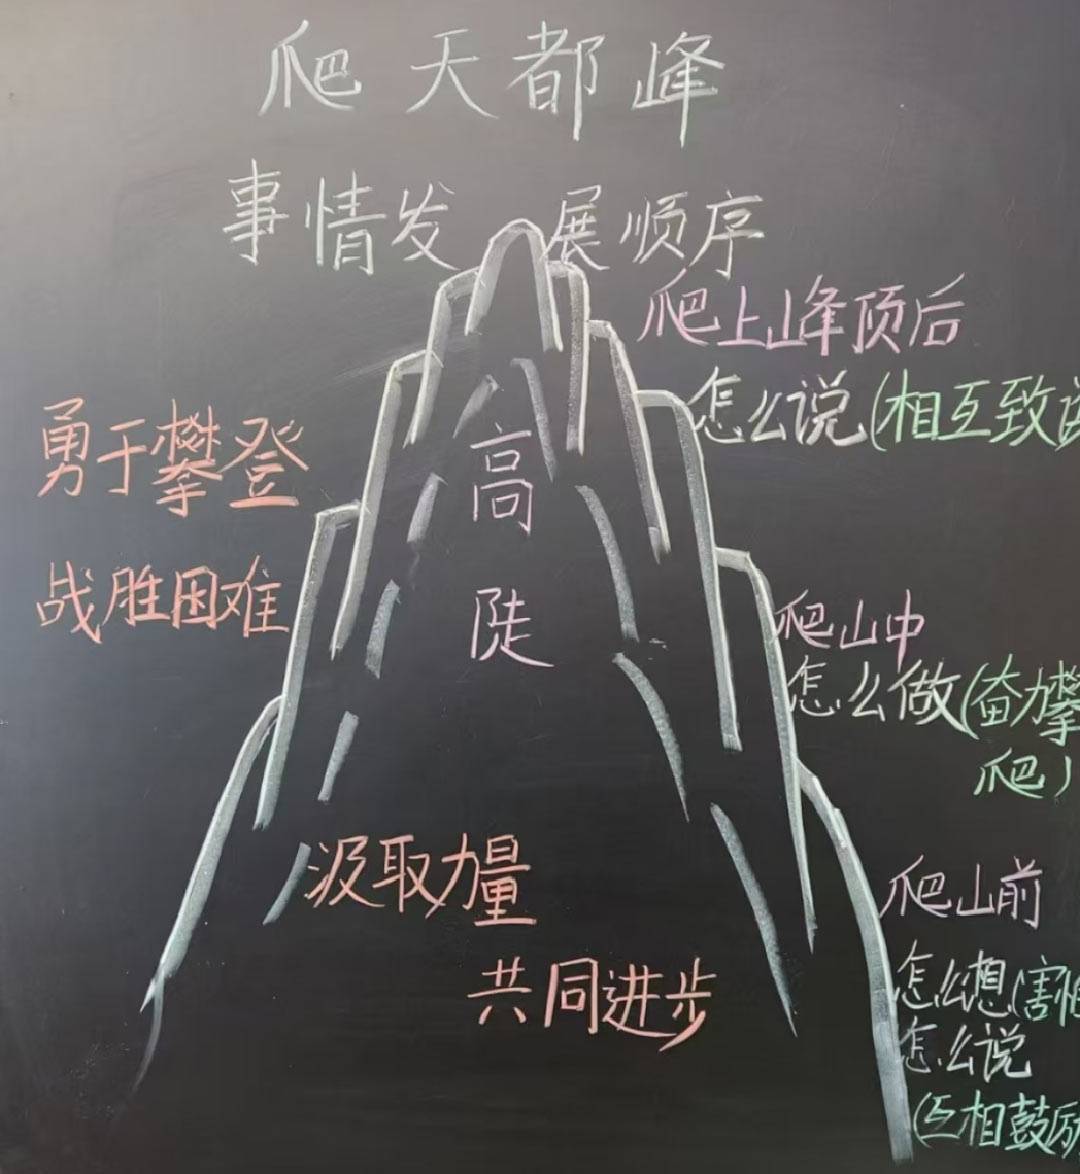 爬天都峰
事情发展顺序
爬上峰顶后
怎么说(相互致
勇于攀登
高
陡
战胜困难
爬山中
怎么做(奋力攀
爬
汲取力量
爬山前
共同进步
怎么想(害怕
怎么说
(互相鼓励